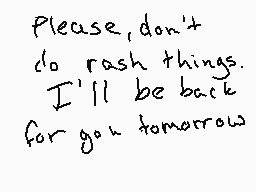 Please, don't
do rash things.
I'll be back
for you tomorrow